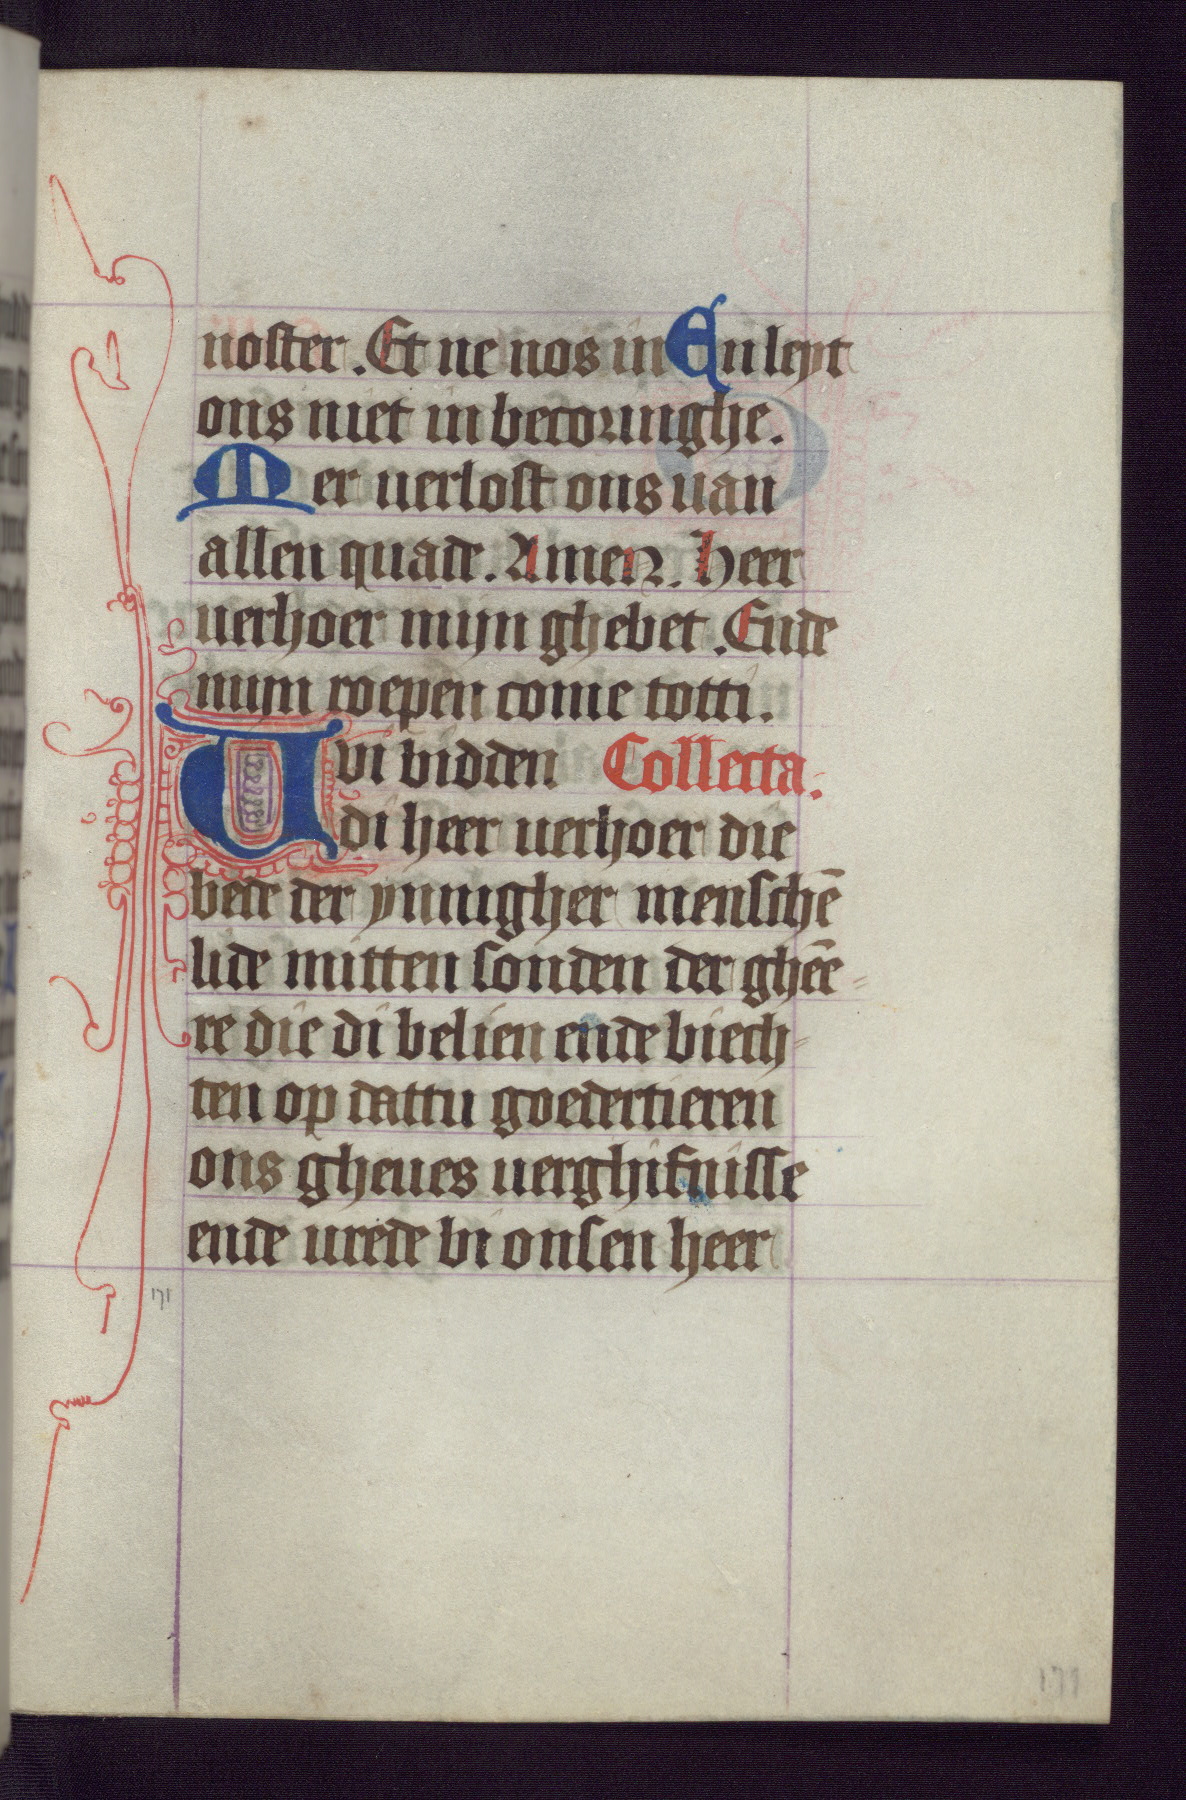 noster. Et ne nos in En leyt
ons niet in becoringhe.
Mer verlost ons van
allen quade. Amen. Heer
verhoer mijn ghebet. Ende
mijn roepen come totti.
Wi bidden Collecta.
di heer verhoer die
bede der ynnigher menschē
lide mitten sonden der ghēe
re die di belien ende biech
ten op dattu goedertieren
ons gheues verghifnisse
ende vrede bi onsen heer
171
171